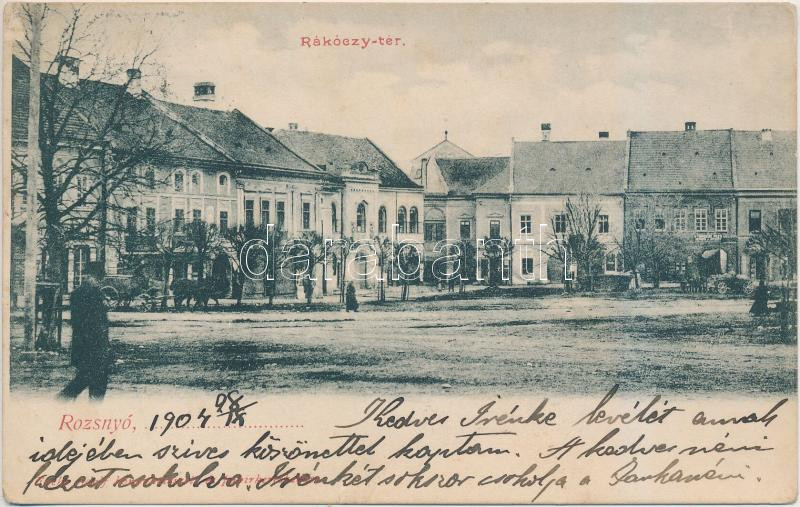 Rákóczy-tér.
darabanth
Rozsnyó, 1904
Kedves Irénke levelét annak
idejében szives köszönettel kaptam. A kedves néni
kezeit csokolva. Irénkét sokszor csokolja a Jankanéni.